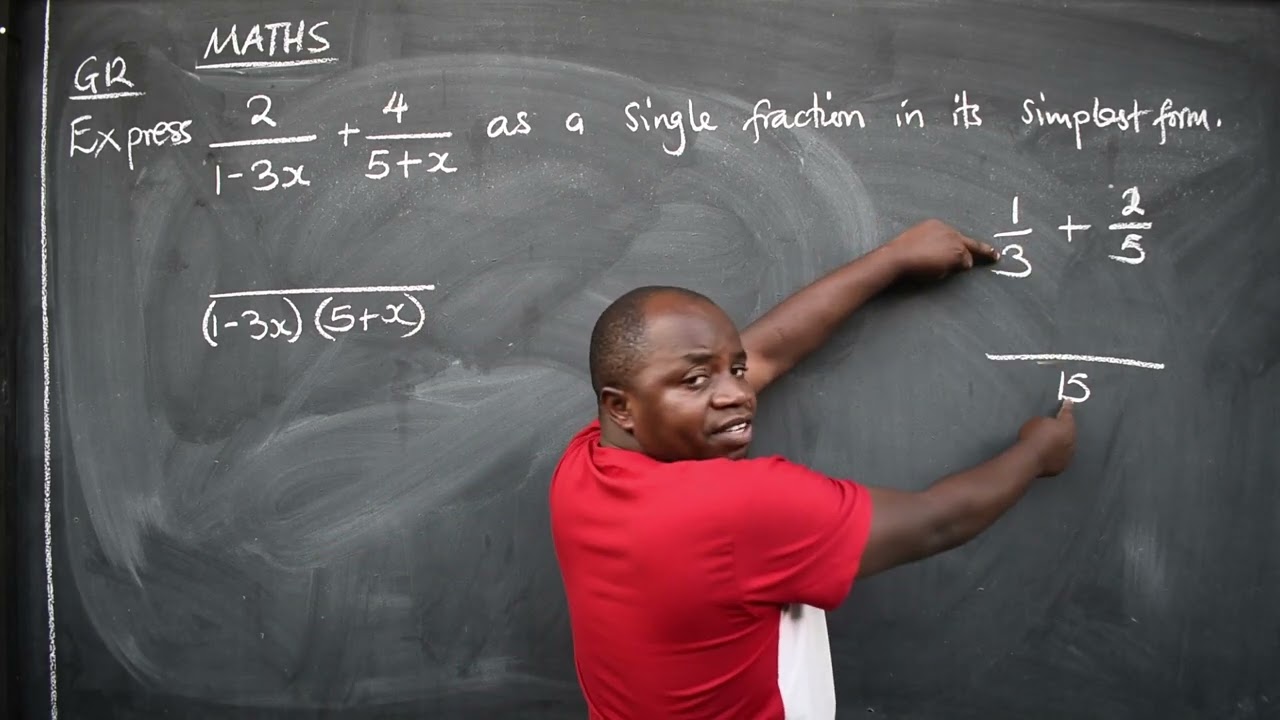 MATHS
G12
Express 2/(1-3x) + 4/(5+x) as a single fraction in its simplest form.
1/3 + 2/5
(1-3x)(5+x)
15